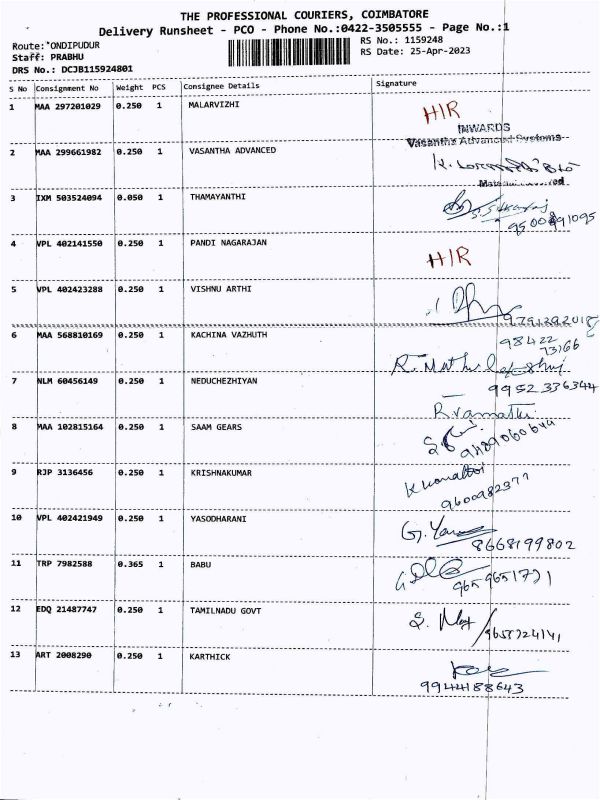 THE PROFESSIONAL COURIERS, COIMBATORE
Delivery Runsheet - PCO - Phone No.:0422-3505555 - Page No.:1
Route: ONDIPUDUR
RS No.: 1159248
Staff: PRABHU
RS Date: 25-Apr-2023
DRS No.: DCJB115924801
S No Consignment No Weight PCS Consignee Details Signature
1 MAA 297201029 0.250 1 MALARVIZHI H/R
INWARDS
Vasantha Advanced Systems
2 MAA 299661982 0.250 1 VASANTHA ADVANCED
3 IXM 503524094 0.050 1 THAMAYANTHI
4 VPL 402141550 0.250 1 PANDI NAGARAJAN H/R
5 VPL 402423288 0.250 1 VISHNU ARTHI
98422
73166
6 MAA 568810169 0.250 1 KACHINA VAZHUTH
7 NLM 60456149 0.250 1 NEDUCHEZHIYAN 9952336344
R. Vamathi
8 MAA 102815164 0.250 1 SAAM GEARS
9 RJP 3136456 0.250 1 KRISHNAKUMAR
9600982377
10 VPL 402421949 0.250 1 YASODHARANI
8668199802
11 TRP 7982588 0.365 1 BABU
9659651721
12 EDQ 21487747 0.250 1 TAMILNADU GOVT
13 ART 2008290 0.250 1 KARTHICK
9944188643